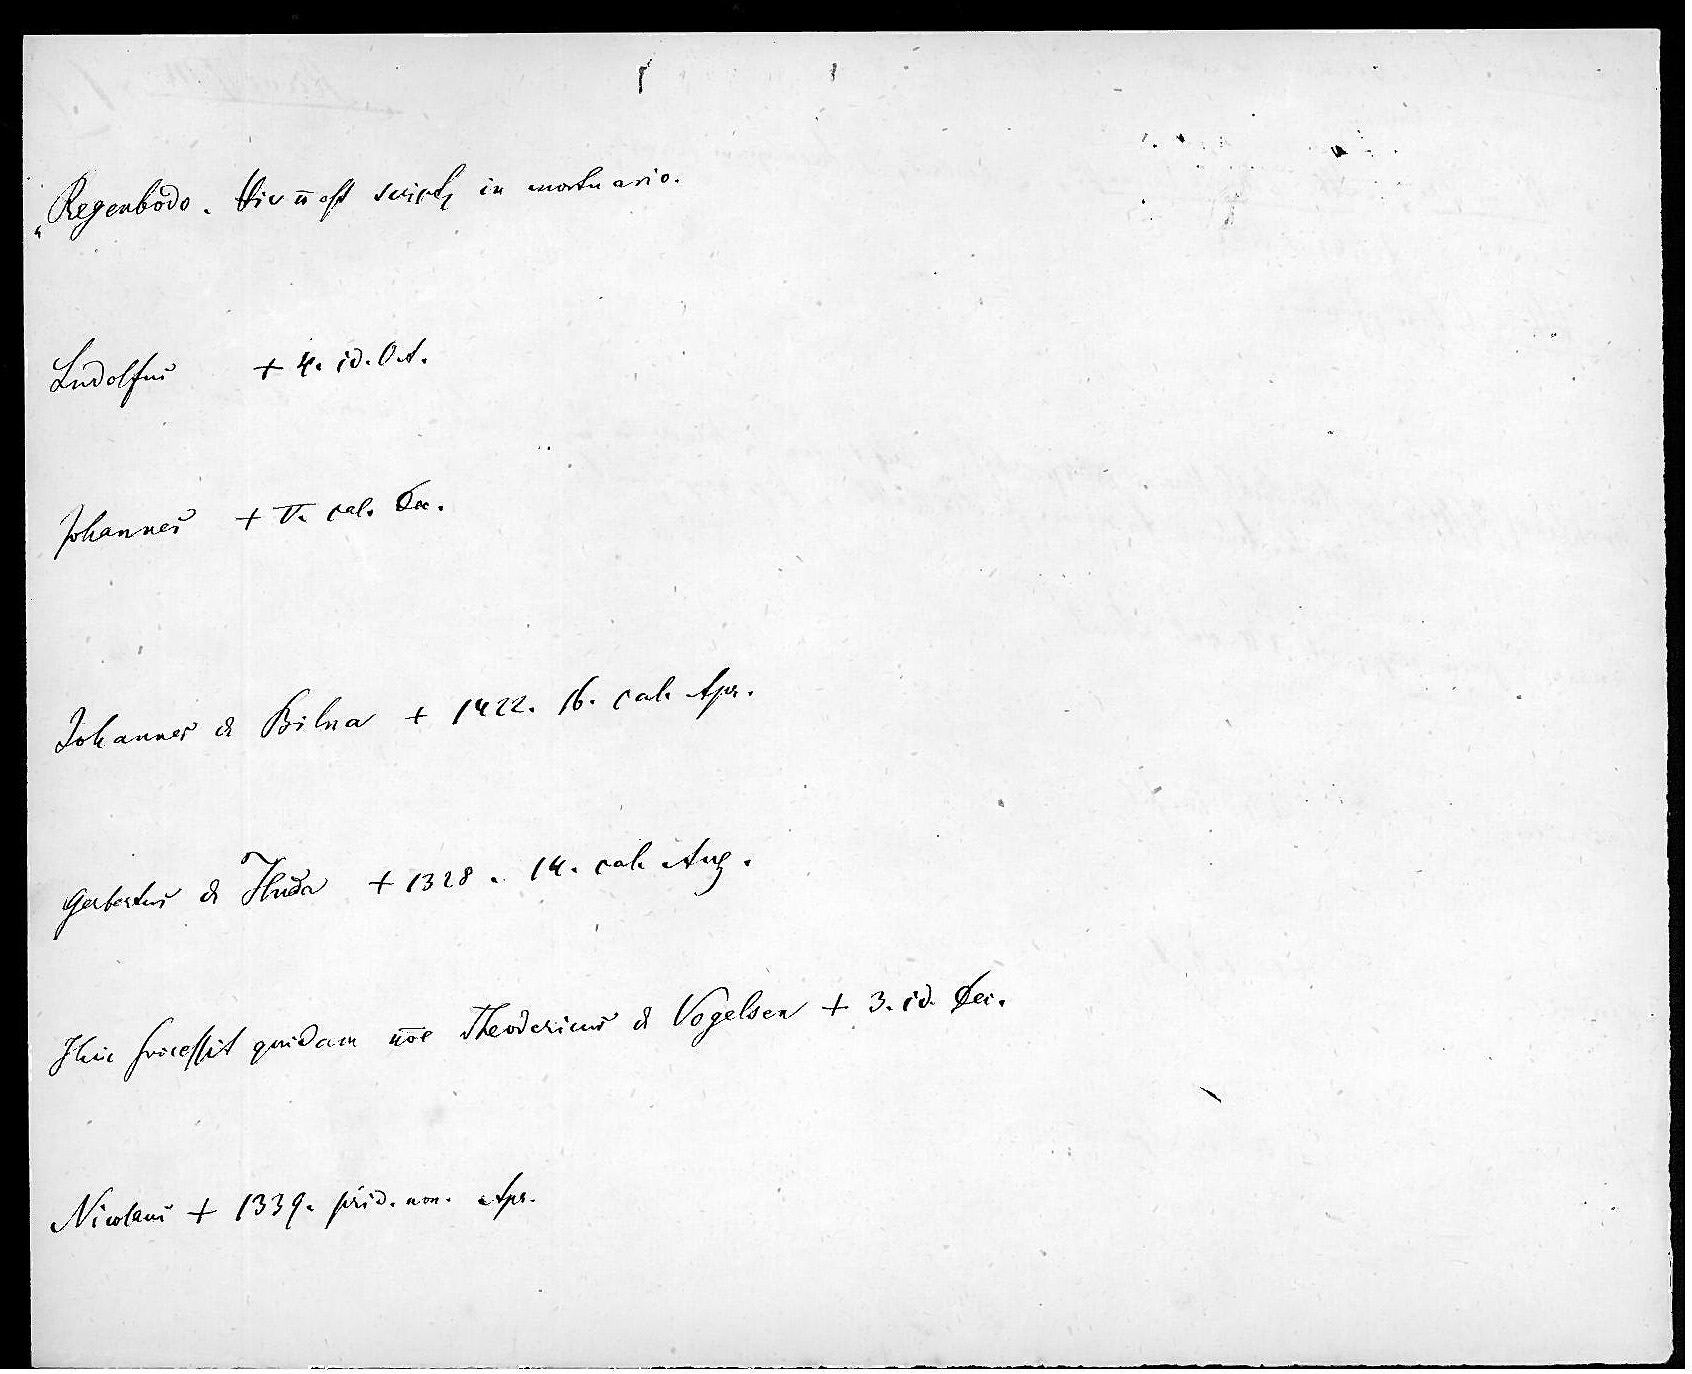 „Regenbodo. Hic n̄ est script in mortuario.
Ludolfus + 4. id. Oct.
Johannes + V. cal. Dec.
Johannes de Bilna + 1422. 16. cal. Apr.
Gerbertus de Thuda + 1328. 14. cal. Aug.
Huic successit quidam nōe Theodericus de Vogelsen + 3. id. Dec.
Nicolaus + 1339. prid. non. Apr.